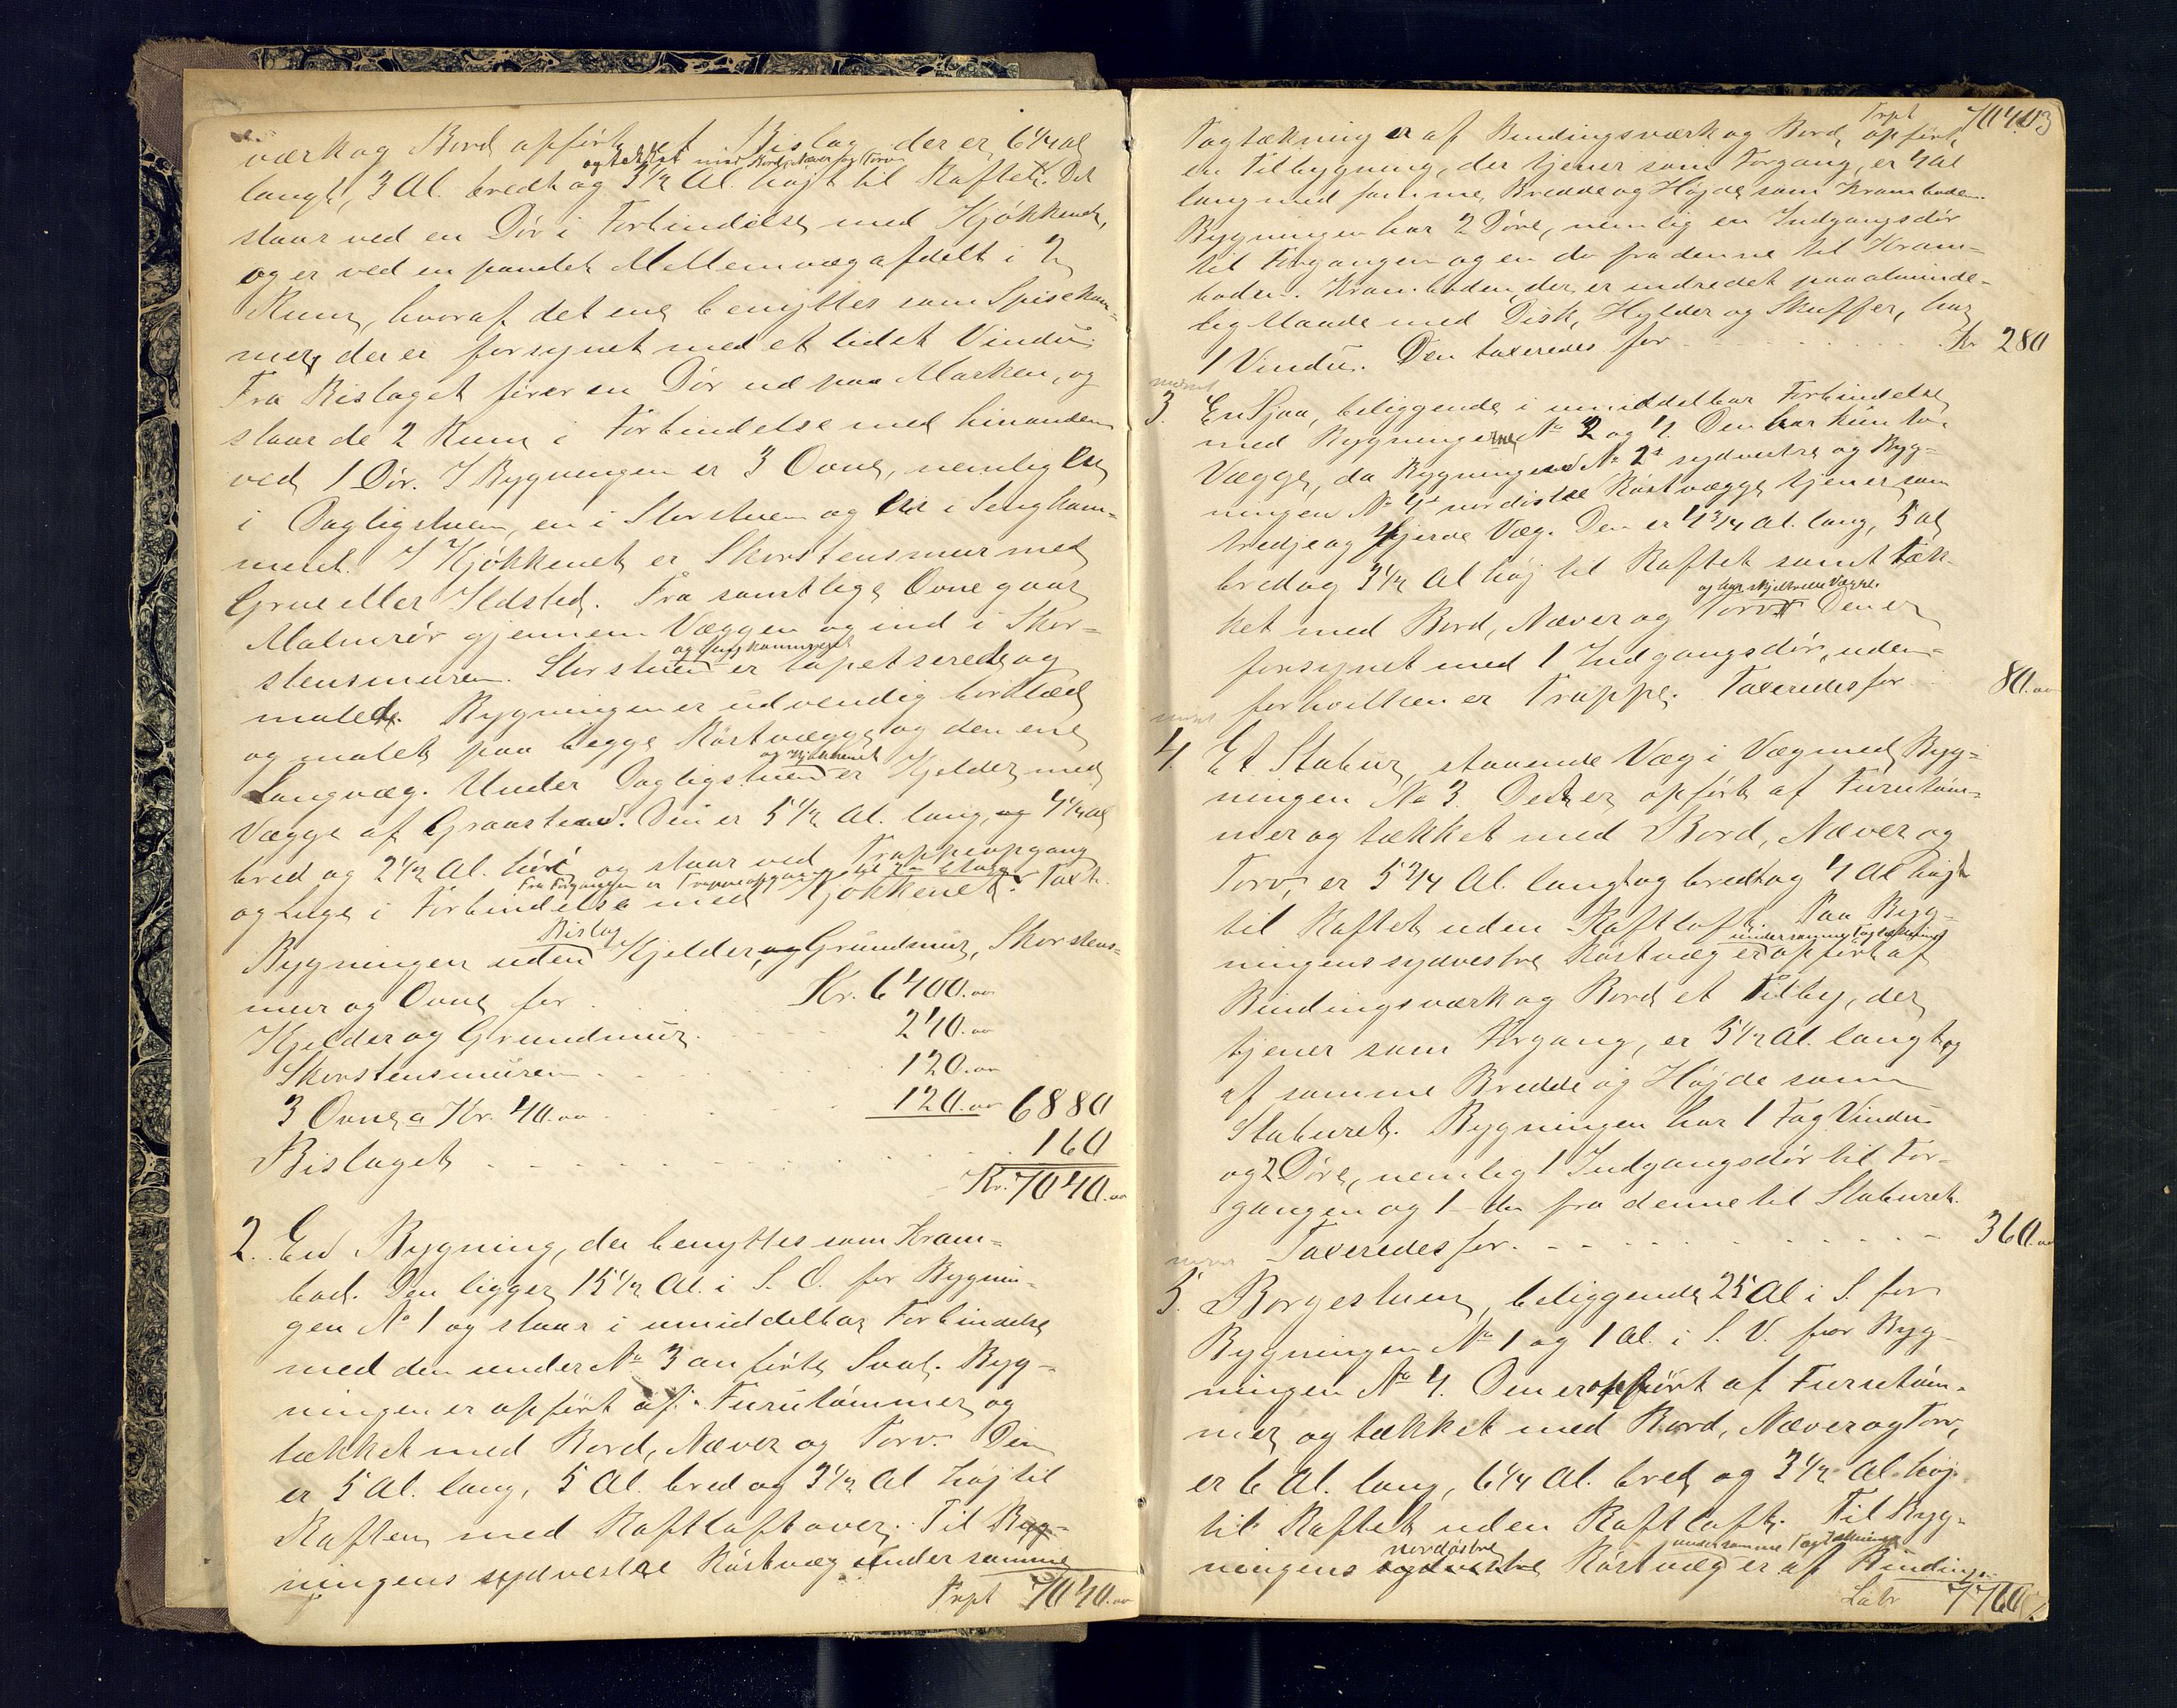 værk og Bord opført et Bislag der er 6 1/4 al
og tækket med Bord, Næver og Torv
langt, 3 Al. bredt og 3 1/2 Al. højt til Raftet. Det
staar ved en Dør i Forbindelse med Kjøkkenet,
og er ved en panelet Mellemvæg afdelt i 2
Rum, hvoraf det ene benyttes som Spisekam-
mer, der er forsynet med et lidet Vindu.
Fra Bislaget fører en Dør ud paa Marken, og
staar de 2 Rum i Forbindelse med hinanden
ved 1 Dør. I Bygningen er 3 Ovne, nemlig en
i Dagligstuen, en i Storstuen og en i Sengkam-
meret. I Kjøkkenet er Skorstensmur med
Grue eller Ildsted. Fra samtlige Ovne gaar
Malmrør gjennem Væggen og ind i Skor-
og Sengkammeret
stensmuren. Storstuen er tapetseret og
malet. Bygningen er udvendig bordklæd
og malet paa begge Røstvægge og den ene
og Kjøkkenet
Langvæg. Under Dagligstuen er Kjelder med
Vægge af Graasten. Den er 5 1/2 Al. lang, og 4 1/2 al
bred og 2 1/2 Al. høi og staar ved Trappeopgang
Fra Forgangen er Trappeopgang til 2den Etage
og Luge i Forbindelse med Kjøkkenet. Taxt.
Bislag
Bygningen uden Kjelder, og Grundmur, Skorstens-
mur og Ovne for . Kr. 6400.00
Kjelder og Grundmur . 240.00
Skorstensmuren . 120.00
3 Ovne a Kr. 40.00 . 120.00 6880
Bislaget . 160
Kr. 7040.00
2. En Bygning, der benyttes som Kram-
bod. Den ligger 15 1/2 Al. i S. O. for Bygnin-
gen No 1 og staar i umiddelbar Forbindelse
med den under No 3 anførte Sval. Byg-
ningen er opført af Furutømmer og
tækket med Bord, Næver og Torv. Den
er 5 Al. lang, 5 Al. bred og 3 1/2 Al høj til
Raften med Raftloft over. Til Byg-
ningens sydvestre Røstvæg under samme
Trpt 7040.00
Trpt 7040.00 3
Tagtækning er af Bindingsværk og Bord opført
en Tilbygning, der tjener som Forgang, er 4 al
lang med samme Bredde og Højde som Kramboden.
Bygningen har 2 Døre, nemlig en Indgangsdør
til Forgangen og en do fra denne til Kram-
boden. Kramboden, der er indredet paa alminde-
lig Maade med Disk, Hylder og Skuffer, har
1 Vindu. Den taxeredes for . Kr 280
3. En Sjaa, beliggende i umiddelbar Forbindelse
med Bygningerne No 2 og 4. Den har kun to
Vægge, da Bygningens No 2s sydvestre og Byg-
ningen No 4s nordøstre Røstvægge tjener som
tredje og fjerde Væg. Den er 4 3/4 Al. lang, 5 al
bred og 3 1/2 Al høj til Raftet samt tæk-
ket med Bord, Næver og Torv. Den er
forsynet med 1 Indgangsdør, uden-
for hvilken er Trappe. Taxeredes for . 80.00
4. Et Stabur, staaende Væg i Væg med Byg-
ningen No 3. Det er opført af Furutøm-
mer og tækket med Bord, Næver og
Torv, er 5 3/4 Al. langt og bredt og 4 Al højt
til Raftet uden Raftloft. Paa Byg-
under samme Tagtækning
ningens sydvestre Røstvæg er opført af
Bindingsværk og Bord et Tilby, der
tjener som Forgang, er 5 1/2 Al. langt og
af samme Bredde og Højde som
Staburet. Bygningen har 1 Fag Vindu
og 2 Døre, nemlig 1 Indgangsdør til For-
gangen og 1 do fra denne til Staburet.
Taxeredes for . 360.00
5. Borgestuen, beliggende 25 Al i S. for
Bygningen No 1 og 1 Al. i S. V. for Byg-
ningen No 4. Den er opført af Furutøm-
mer og tækket med Bord, Næver og Torv,
er 6 Al. lang, 6 1/4 Al. bred og 3 1/2 Al. høj
til Raftet uden Raftloft. Til Byg-
nordøstre under samme Tagtækning
ningens sydvestre Røstvæg er af Bindings-
Labr 7760